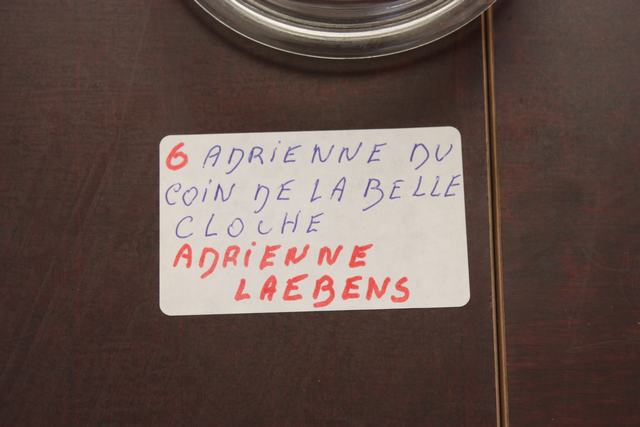 6 ADRiENNE DU
COiN DE LA BELLE
CLOCHE
ADRiENNE
LAEBENS